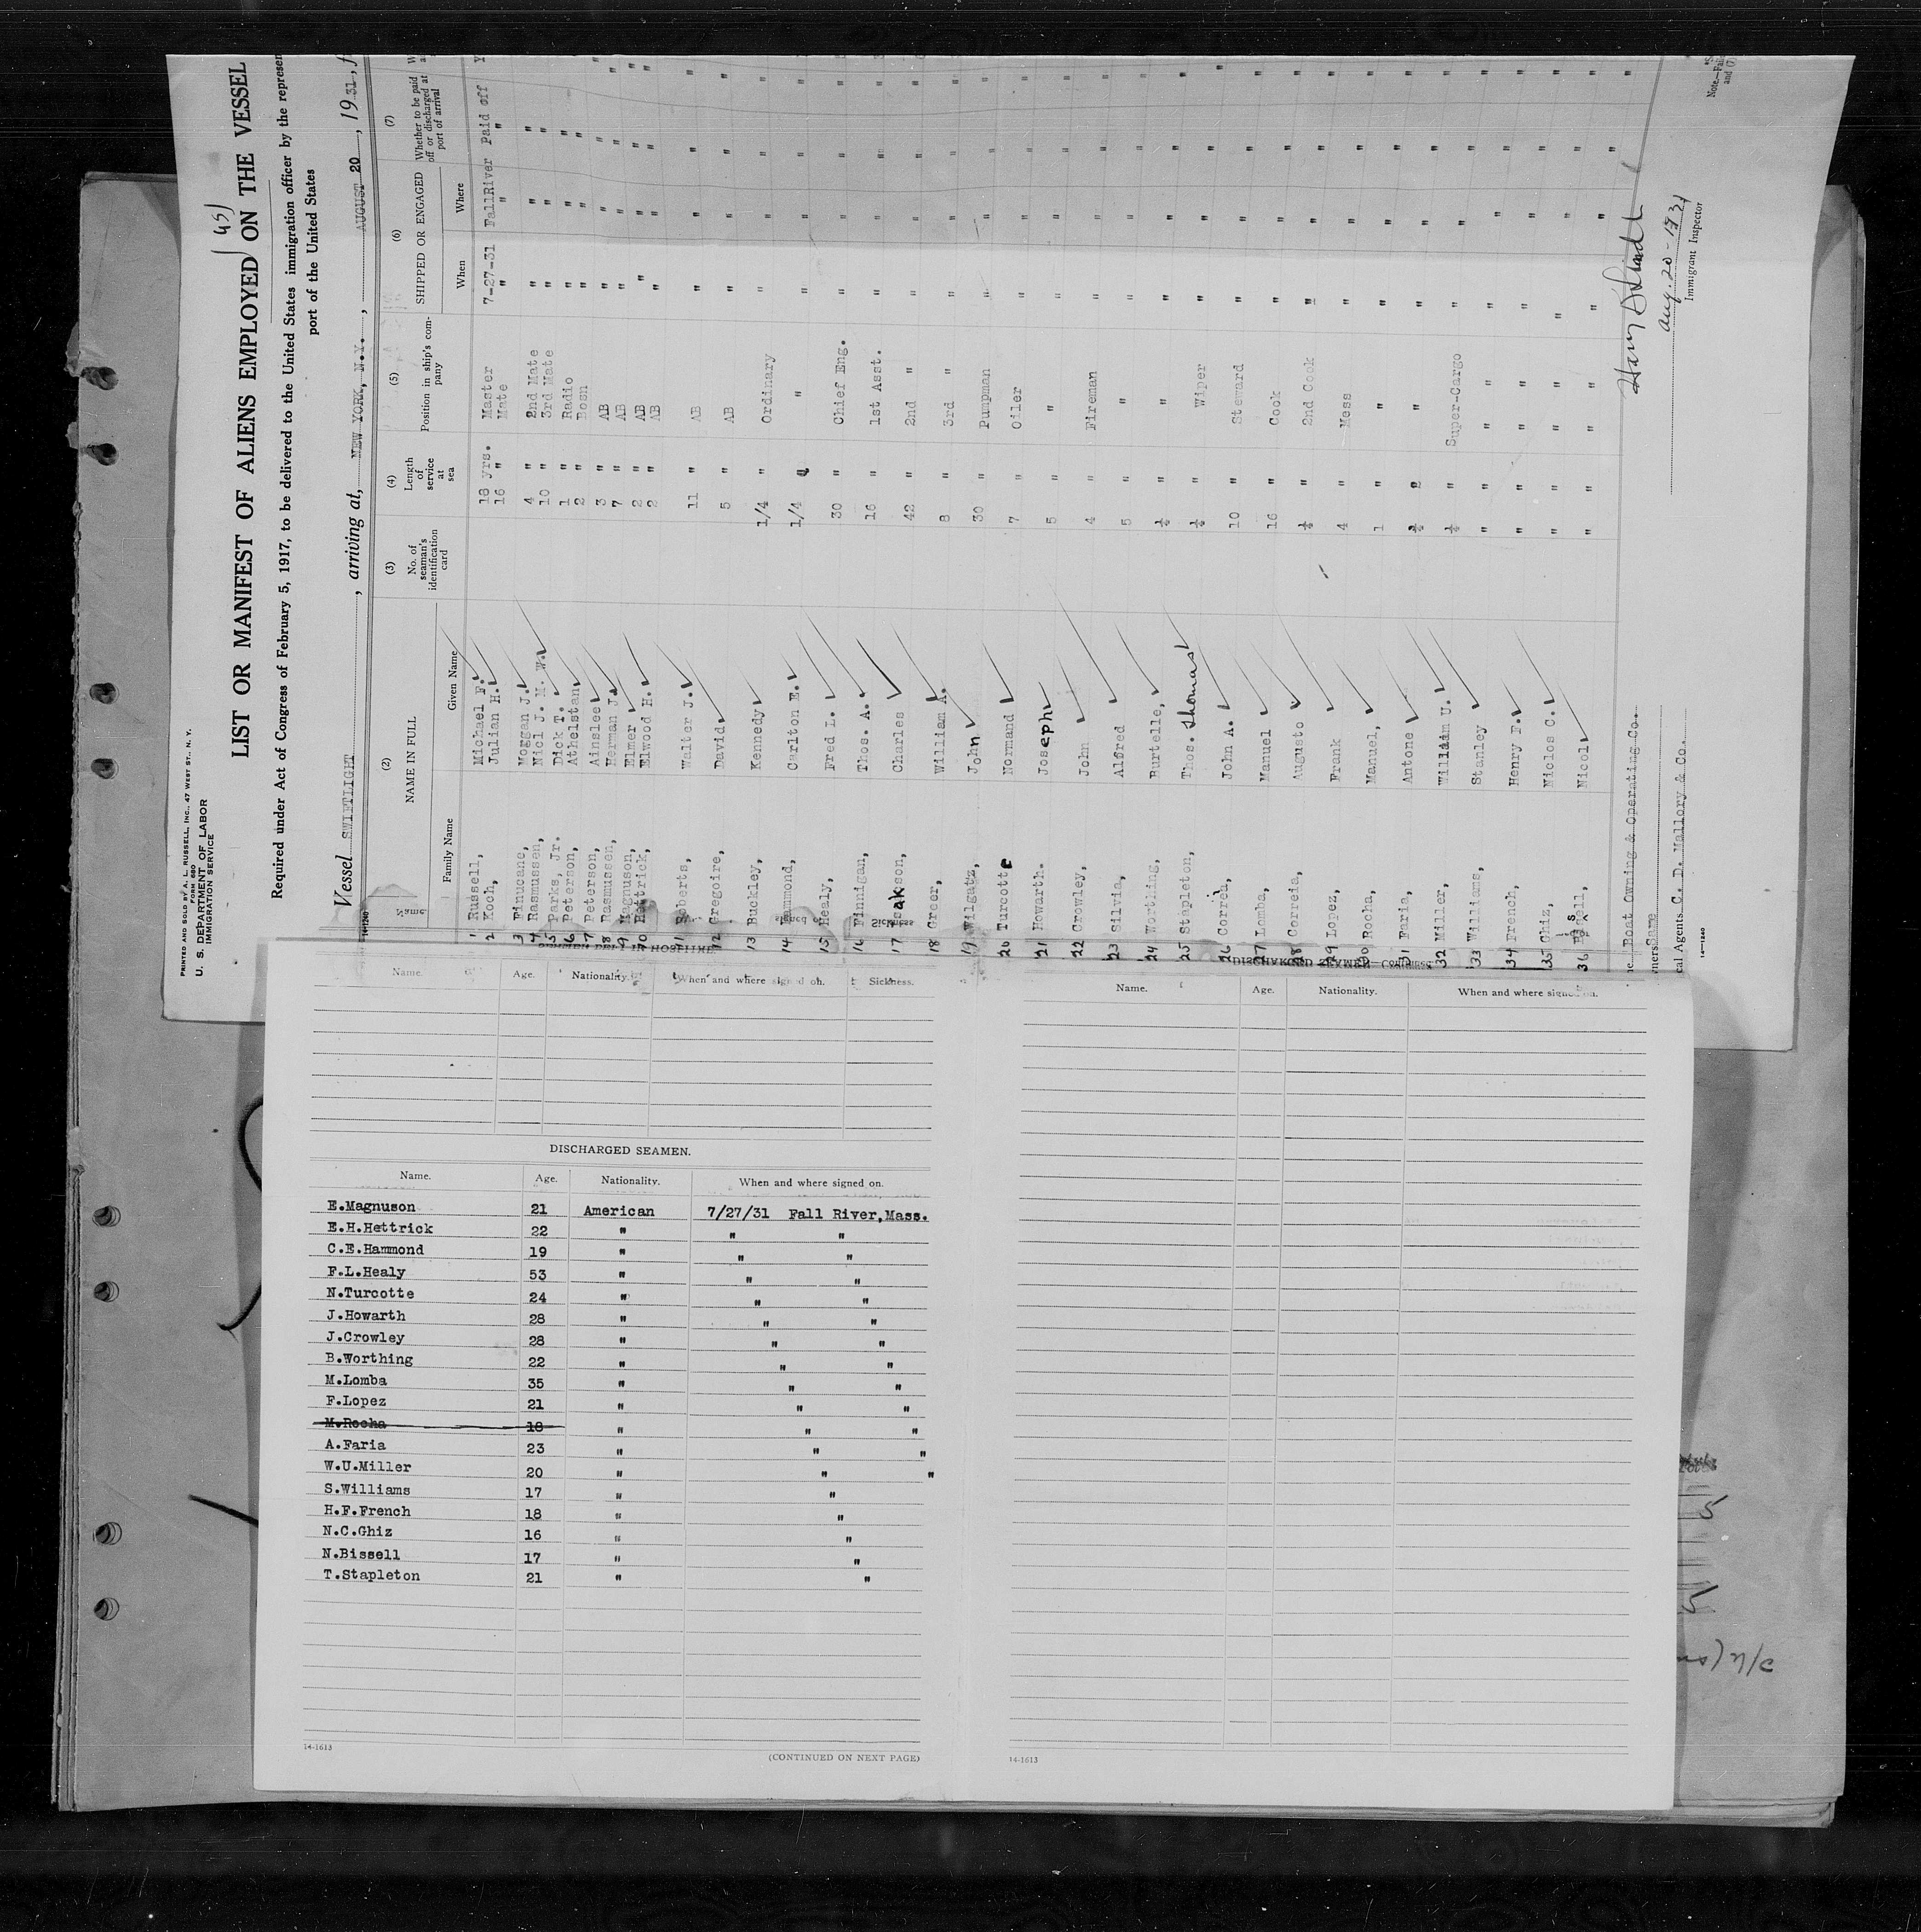 PRINTED AND SOLD BY A. L. RUSSELL, INC., 47 WEST ST., N. Y.
FORM 680
U. S. DEPARTMENT OF LABOR
IMMIGRATION SERVICE
(45)
LIST OR MANIFEST OF ALIENS EMPLOYED ON THE VESSEL
Required under Act of Congress of February 5, 1917, to be delivered to the United States immigration officer by the represen
port of the United States
Vessel SWIFTLIGHT, arriving at, NEW YORK, N.Y., AUGUST 20, 1931, f
14-1240
(2) (3) (4) (5) (6) (7)
NAME IN FULL No. of seaman's identification card Length of service at sea Position in ship's company SHIPPED OR ENGAGED Whether to be paid off or discharged at port of arrival
Family Name Given Name When Where
1 Russell, Michael F. 18 yrs. Master 7-27-31 FallRiver Paid off Y
2 Koch, Julian H. 16 " Mate " " "
3 Finucane, Moggan J. 4 " 2nd Mate " " "
4 Rasmussen, Nicl J. M. W. 10 " 3rd Mate " " "
5 Parks, Jr. Dick T. 1 " Radio " " "
6 Peterson, Athelstan 2 " Bosn " " "
7 Peterson, Ainslee 3 " AB " " "
8 Rasmussen, Herman J. 7 " AB " " "
9 Magnuson, Elmer 2 " AB " " "
10 Hettrick, Elwood H. 2 " AB " " "
11 Roberts, Walter J. 11 " AB " " "
12 Gregoire, David 5 " AB " " "
13 Buckley, Kennedy 1/4 " Ordinary " " "
14 Hammond, Carlton E. 1/4 " " " " "
15 Healy, Fred L. 30 " Chief Eng. " " "
16 Finnigan, Thos. A. 16 " 1st Asst. " " "
17 Charles 42 " 2nd " " " "
18 Greer, William A. 8 " 3rd " " " "
19 Wilgatz, John 30 " Pumpman " " "
20 Turcotte Normand 7 " Oiler " " "
21 Howarth. Joseph 5 " " " " "
22 Crowley, John 4 " Fireman " " "
23 Silvia, Alfred 5 " " " " "
24 Worthing, Burtelle, ½ " " " " "
25 Stapleton, Thos. Thomas ½ " Wiper " " "
26 Correa, John A. 10 " Steward " " "
27 Lomba, Manuel 16 " Cook " " "
28 Correia, Augusto ½ " 2nd Cook " " "
29 Lopez, Frank 4 " Mess " " "
30 Rocha, Manuel, 1 " " " " "
31 Faria, Antone " " " "
32 Miller, William U. ½ " Super-Cargo " " "
33 Williams, Stanley " " " " " "
34 French, Henry F. " " " " " "
35 Ghiz, Niclos C. " " " " " "
36 Bissell, Nicol " " " " " "
Boat Owning & Operating Co.
Same
cal Agents C. D. Mallory & Co.
14-1240
Aug. 20-1931
Immigrant Inspector
Name. Age. Nationality. When and where signed on. Sickness.
DISCHARGED SEAMEN.
Name. Age. Nationality. When and where signed on.
E.Magnuson 21 American 7/27/31 Fall River,Mass.
E.H.Hettrick 22 " " "
C.E.Hammond 19 " " "
F.L.Healy 53 " " "
N.Turcotte 24 " " "
J.Howarth 28 " " "
J.Crowley 28 " " "
B.Worthing 22 " " "
M.Lomba 35 " " "
F.Lopez 21 " " "
M.Rocha 18 " " "
A.Faria 23 " " "
W.U.Miller 20 " " "
S.Williams 17 " "
H.F.French 18 " "
N.C.Ghiz 16 " "
N.Bissell 17 " "
T.Stapleton 21 " "
14-1613
(CONTINUED ON NEXT PAGE)
DISCHARGED SEAMEN—Continued
Name. Age. Nationality. When and where signed on.
14-1613